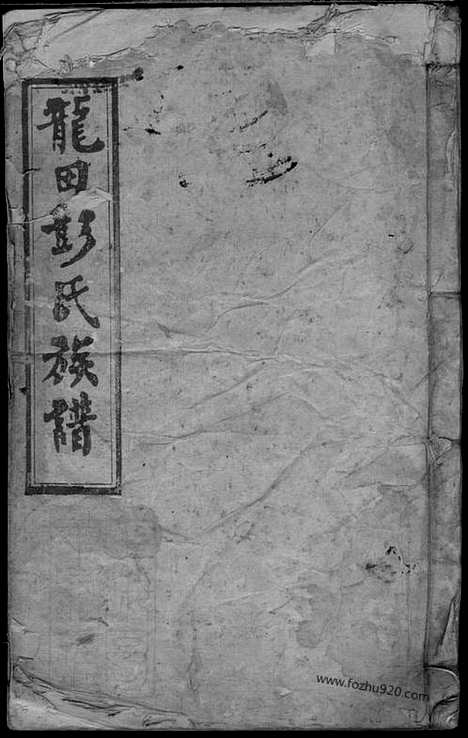 龍田彭氏族譜
www.fozhu920.com